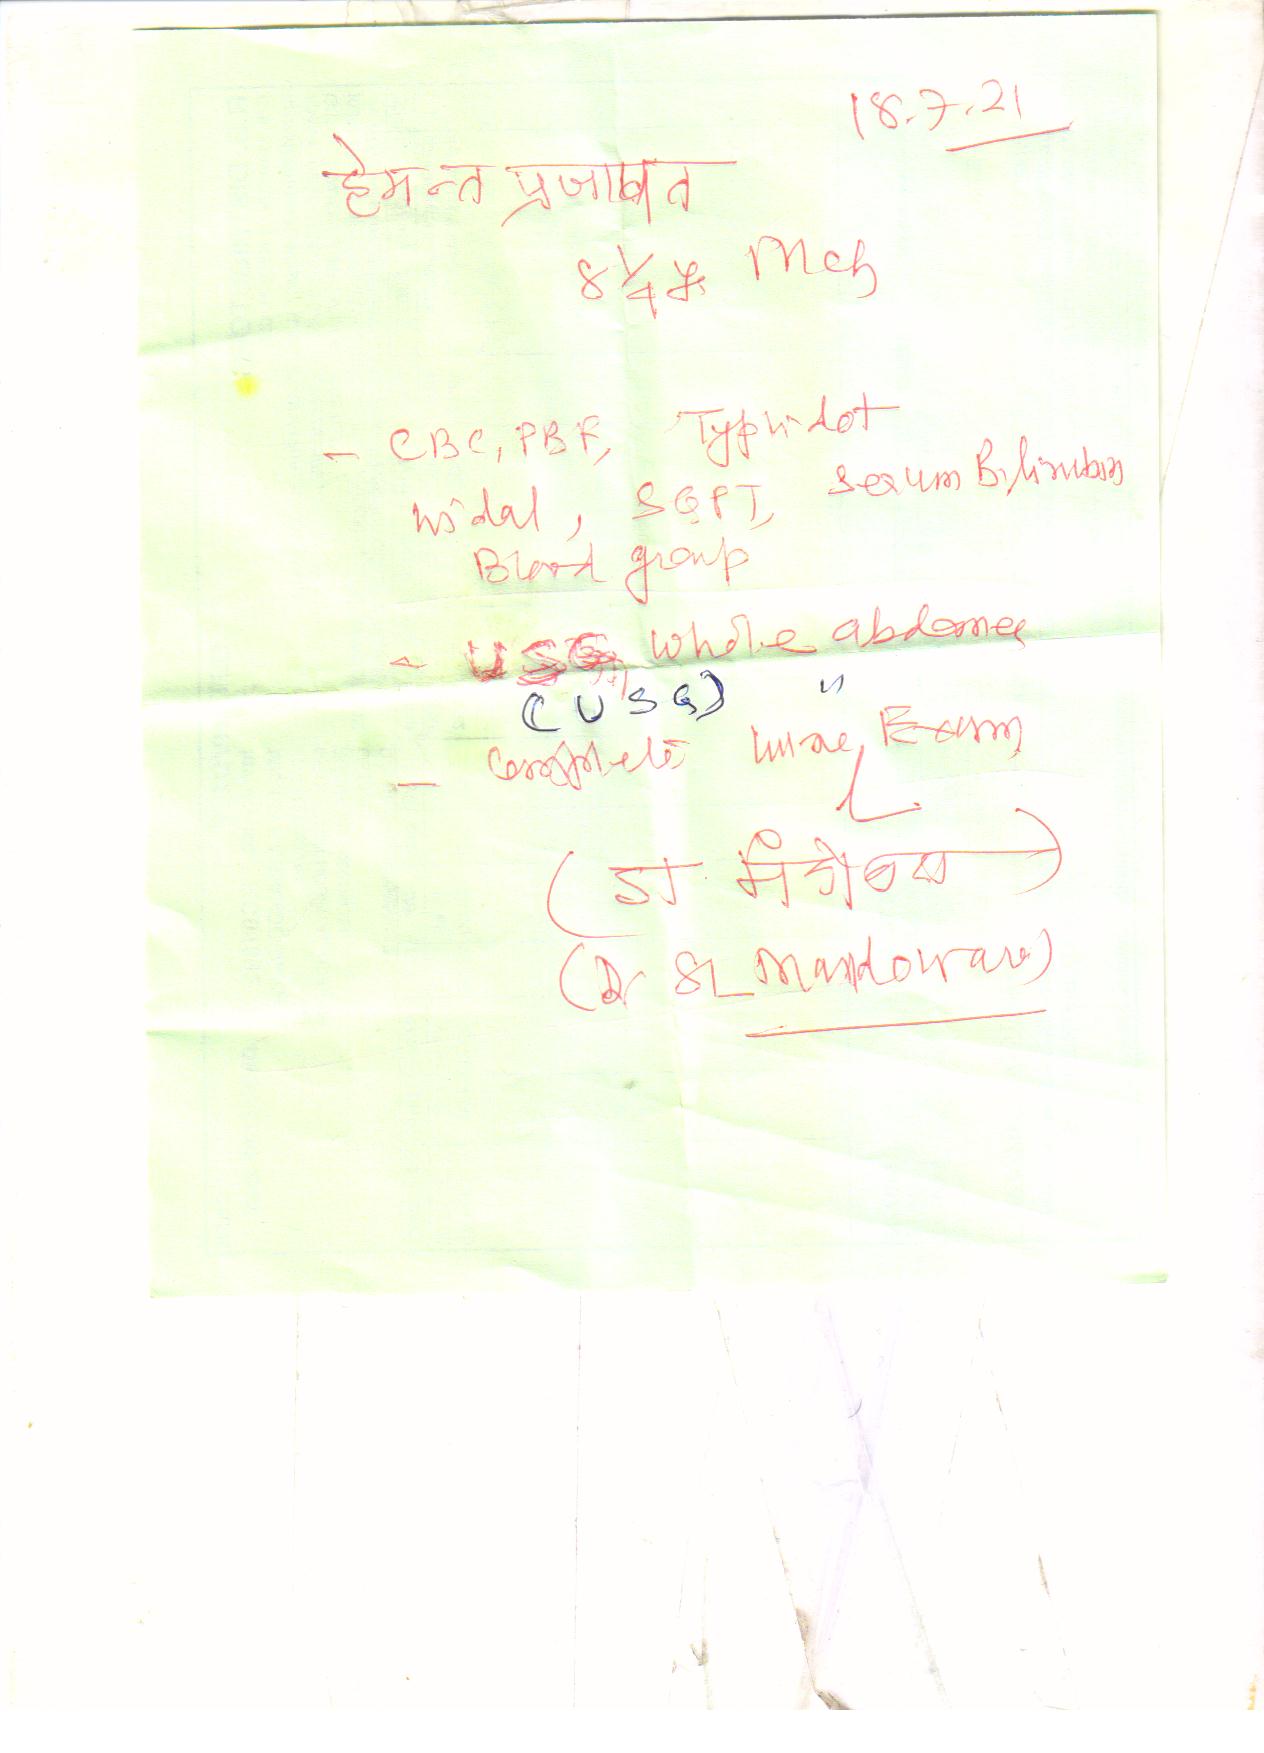 18.7.21
हेमन्त प्रजापत
8 1/4 yr Mch
- CBC, PBF, Typhidot
widal, SGPT, Serum Bilirubin
Blood group
- USG whole abdomen
(USG) "
- complete urine Exam
(डा
(Dr SL Mandowara)